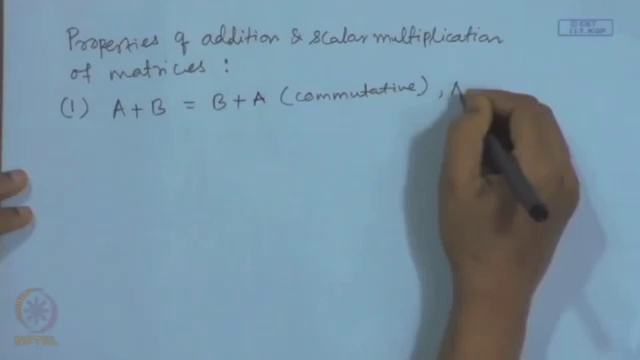 Properties of addition & scalar multiplication
of matrices :
(1) A + B = B + A (commutative) , A
© CET
I.I.T. KGP
NPTEL